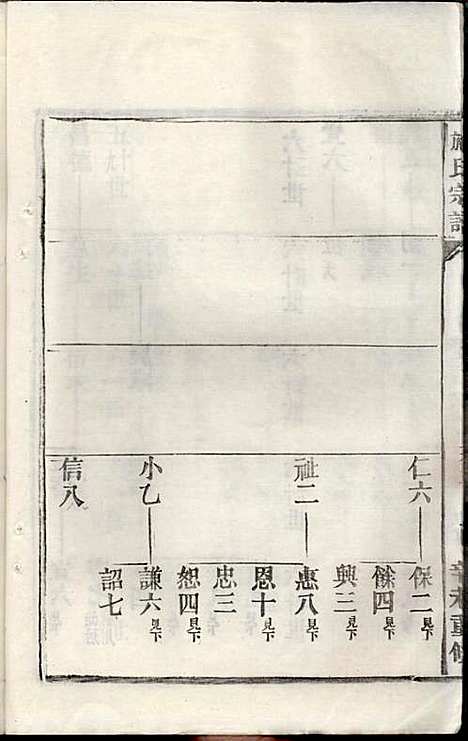 施氏宗譜
辛未重修
仁六
祉二
小乙
信八
保二見下
餘四見下
興三見下
惠八見下
恩十見下
忠三
恕四見下
謙六見下
詔七